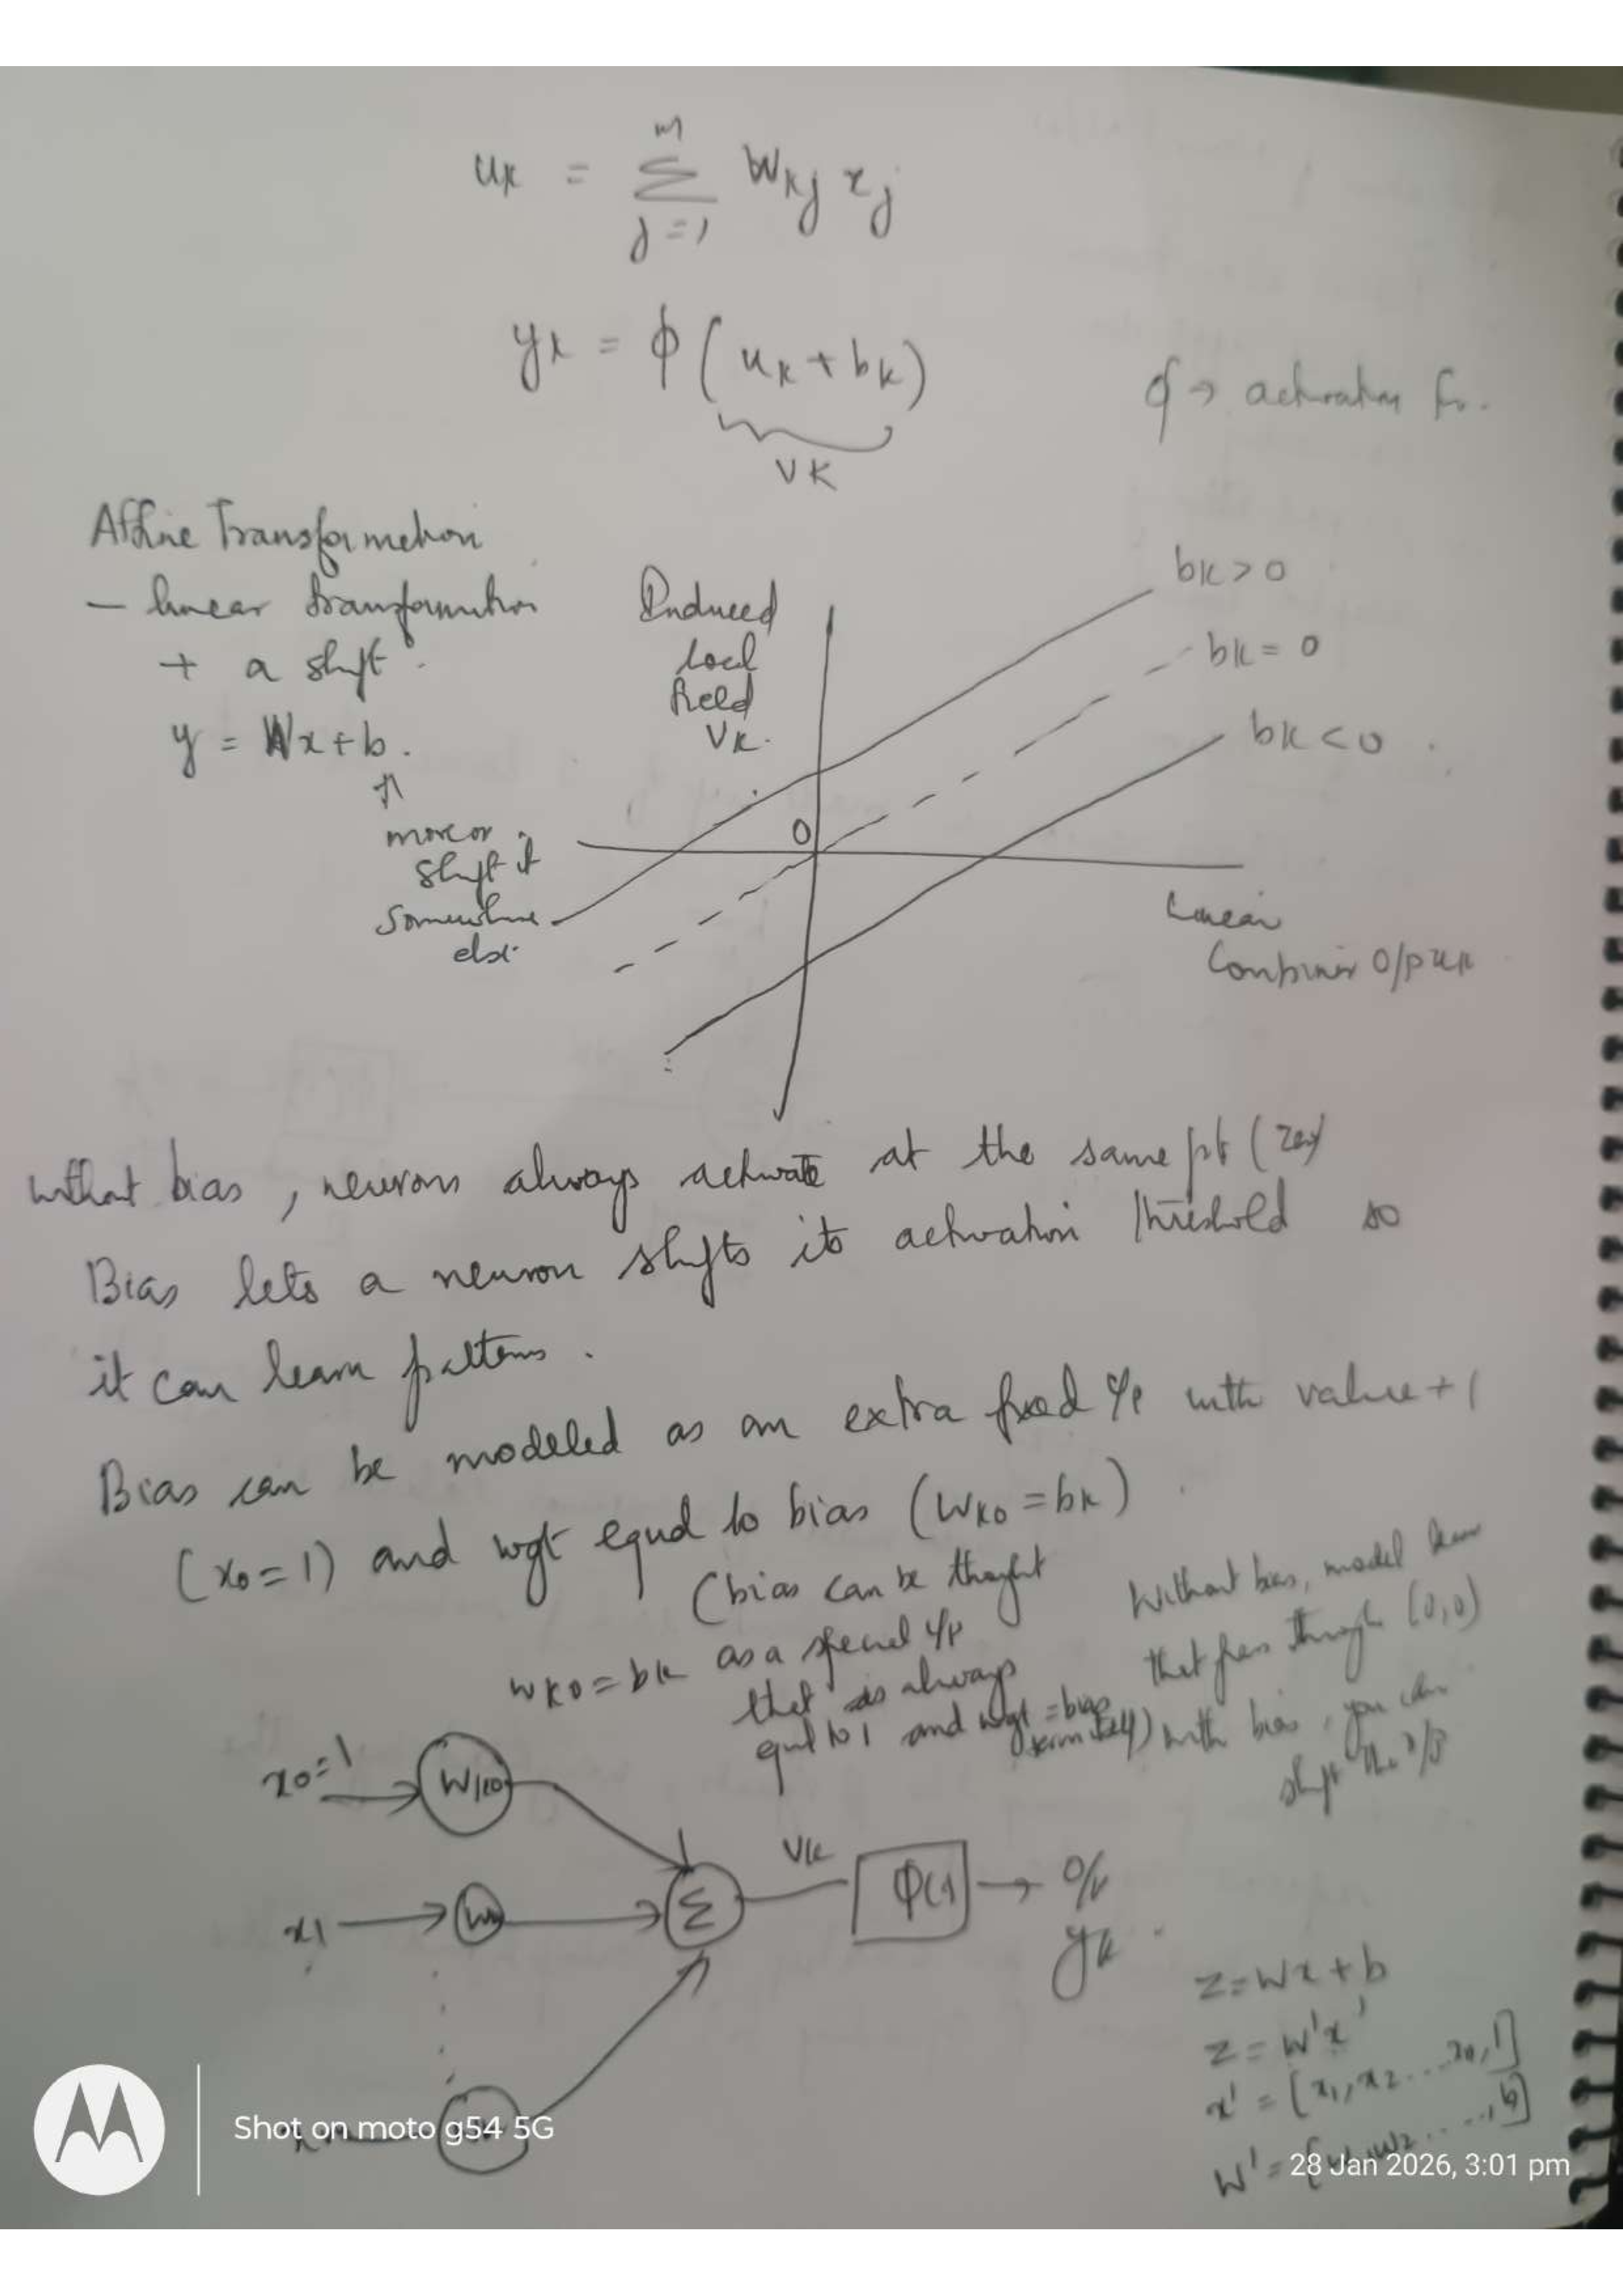 uk = Σ wkj xj
m
j=1
yk = φ (uk + bk)
vk
φ → activation fn.
Affine Transformation
– linear transformation
+ a shift.
y = Wx + b.
↑
move or
shift it
somewhere
else.
Induced
local
field
vk.
bk > 0
bk = 0
bk < 0
0
Linear
Combiner O/p uk
without bias, neurons always activate at the same pt (zero)
Bias lets a neuron shifts its activation threshold so
it can learn patterns.
Bias can be modeled as an extra fixed i/p with value +1
(x0 = 1) and wgt equal to bias (wk0 = bk)
(bias can be thought
as a special i/p
that is always
equal to 1 and wgt = bias
term itself)
Without bias, model
that pass through (0,0)
with bias, you can
shift the
wk0 = bk
x0 = 1
wk0
x1
Σ
vk
φ(.)
→ o/p
yk.
z = wx + b
z = w'x'
x' = [x1, x2 ... xn, 1]
w' = [w1, w2 ... , b]
Shot on moto g54 5G
28 Jan 2026, 3:01 pm